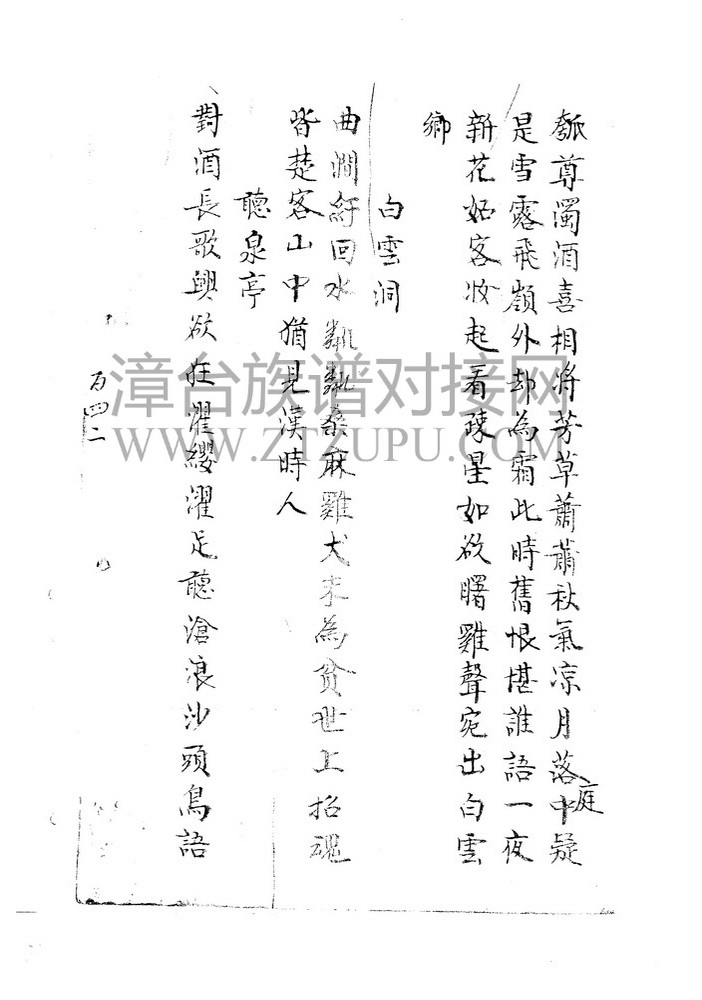 瓠尊濁酒喜相将芳草蕭蕭秋氣凉月落中庭疑
是雪露飛嶺外却為霜此時舊恨堪誰語一夜
新花好客妝起看疎星如欲曙雞聲宛出白雲
鄉
白雲洞
曲澗紆回水粼粼桑麻雞犬未為貧世上招魂
皆楚客山中猶見漢時人
聽泉亭
對酒長歌興欲狂濯纓濯足聽滄浪沙頭鳥語
百四二
漳台族谱对接网
WWW.ZTZUPU.COM